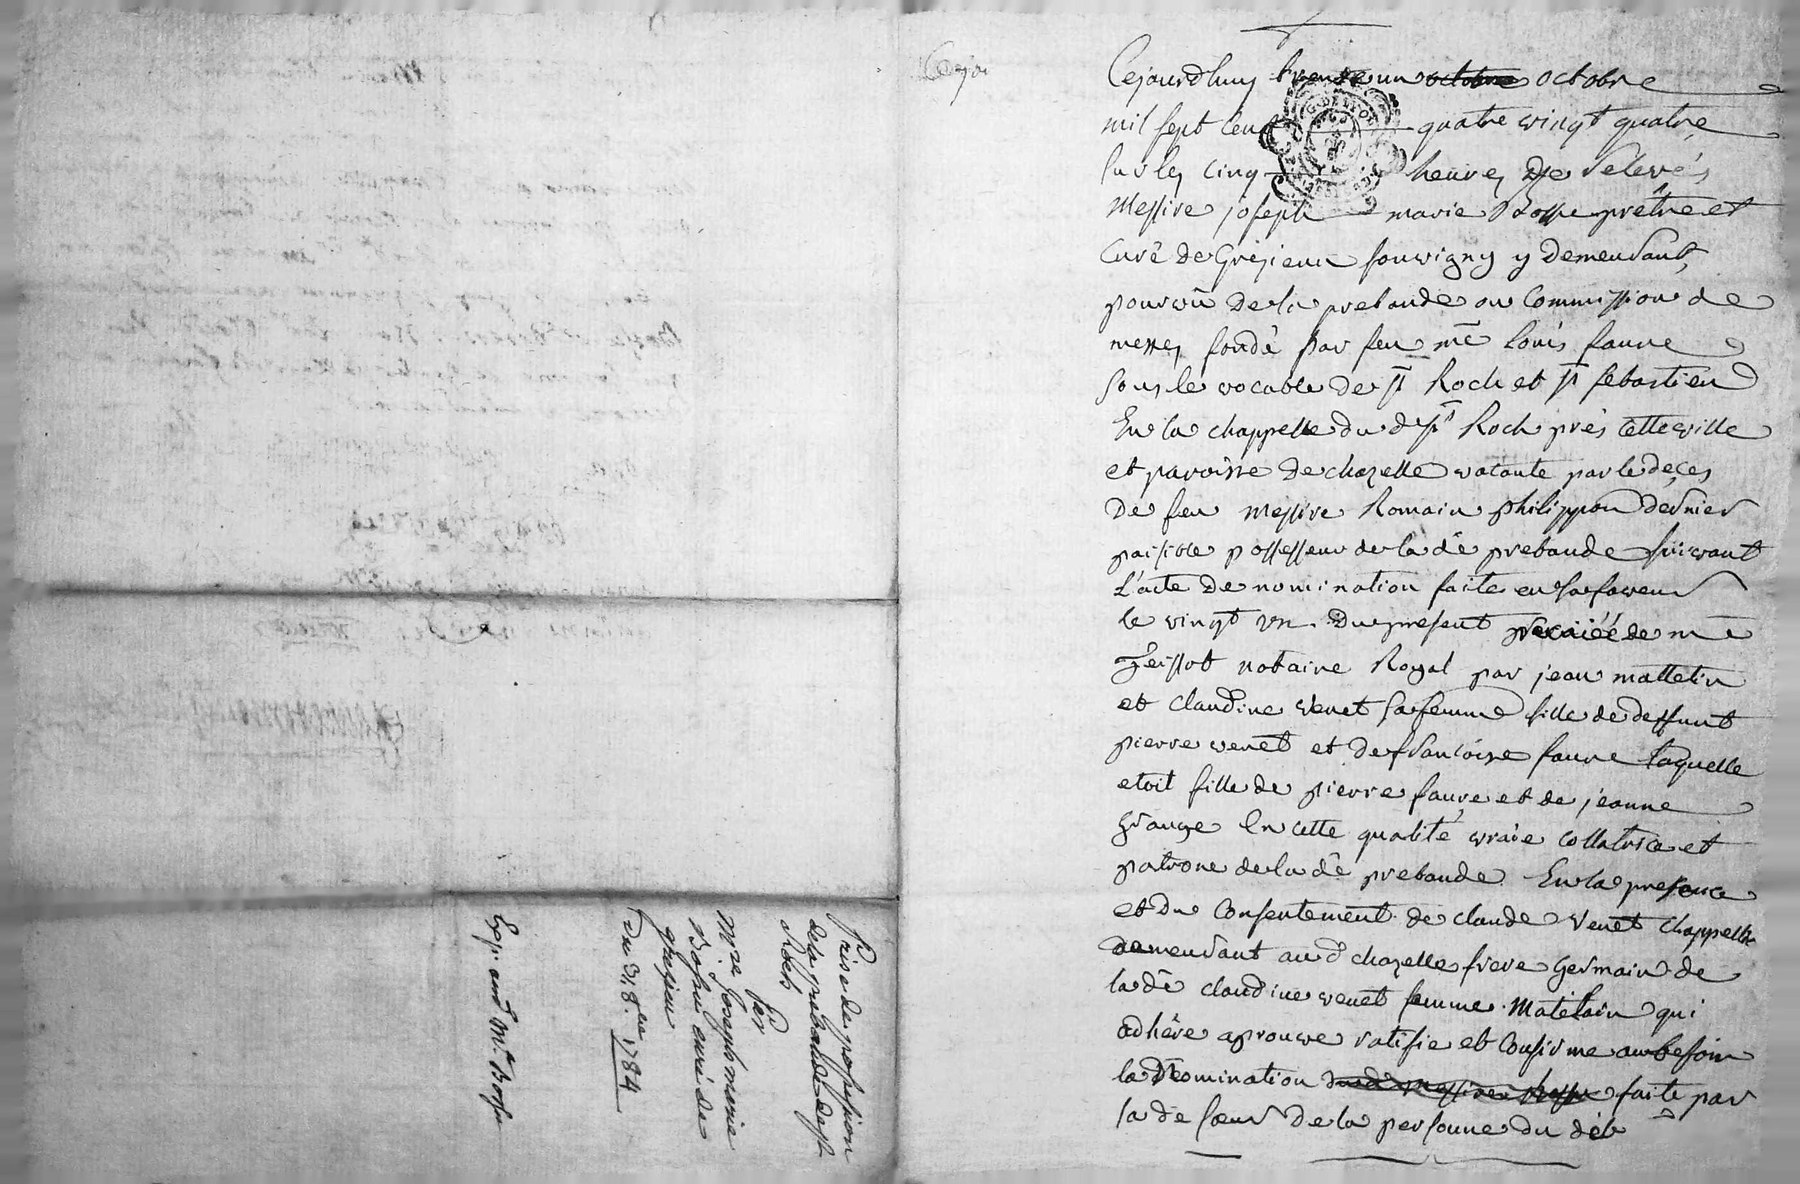 Cejourdhuy trente un octobre octobre
mil sept cent quatre vingt quatre
sur les cinq heures de relevés
messire joseph marie Bosse prêtre et
curé de Grésieux souvigny y demeurant,
pourvû de la prebande ou commission de
messes fondé par feu me louis faure
sous le vocable de st Roch et st sebastien
En la chappelle du d st Roch près cette ville
et paroisse de chazelle vacante par le deces
de feu messire Romain philippon dernier
paisible possesseur de la de prebande suivant
l'acte de nomination faite en sa faveur
le vingt un du present me
notaire Royal par jean mattelin
et claudine venet sa femme fille de deffunt
pierre venet et de francoise faure laquelle
etoit fille de pierre faure et de jeanne
grange En cette qualité vraie collatrice et
patrone de la de prebande. En la presence
et du consentement de claude venet chappelle
demeurant aud chazelle frere germain de
la de claudine venet femme matelain qui
adhère aprouve ratifie et confirme au besoin
la nomination faite par
la de sœur de la personne du
Prise de possession
de la prebande de st
Roch
Par
Mre Joseph marie
Bosse curé de
grésieu
du 31 8bre 1784
Exp. aud Mre Bosse